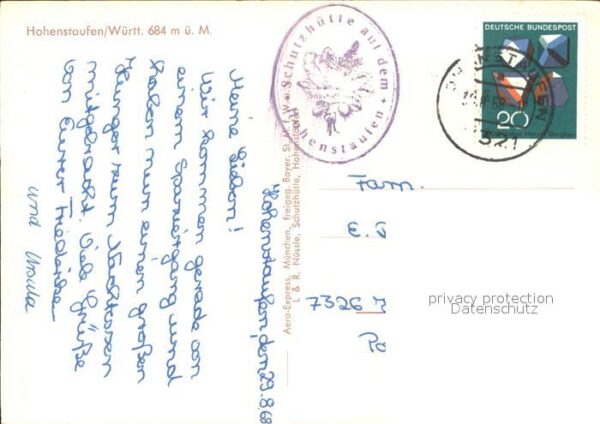 Hohenstaufen/Württ. 684 m ü. M.
Schutzhütte auf dem Hohenstaufen
DEUTSCHE BUNDESPOST
20
321
Hohenstaufen, den 29.8.68
Meine Lieben!
Wir kommen gerade von
einem Spaziergang und
haben nun einen großen
Hunger zum Nachtessen
mitgebracht. Viele Grüße
von Eurer Friederike
und Ursula
Aero-Express, München, freigeg. Bayer. St. M. f. W.
L & R. Nüssle, Schutzhütte, Hohenstaufen
Fam.
E. S
7326
privacy protection
Datenschutz